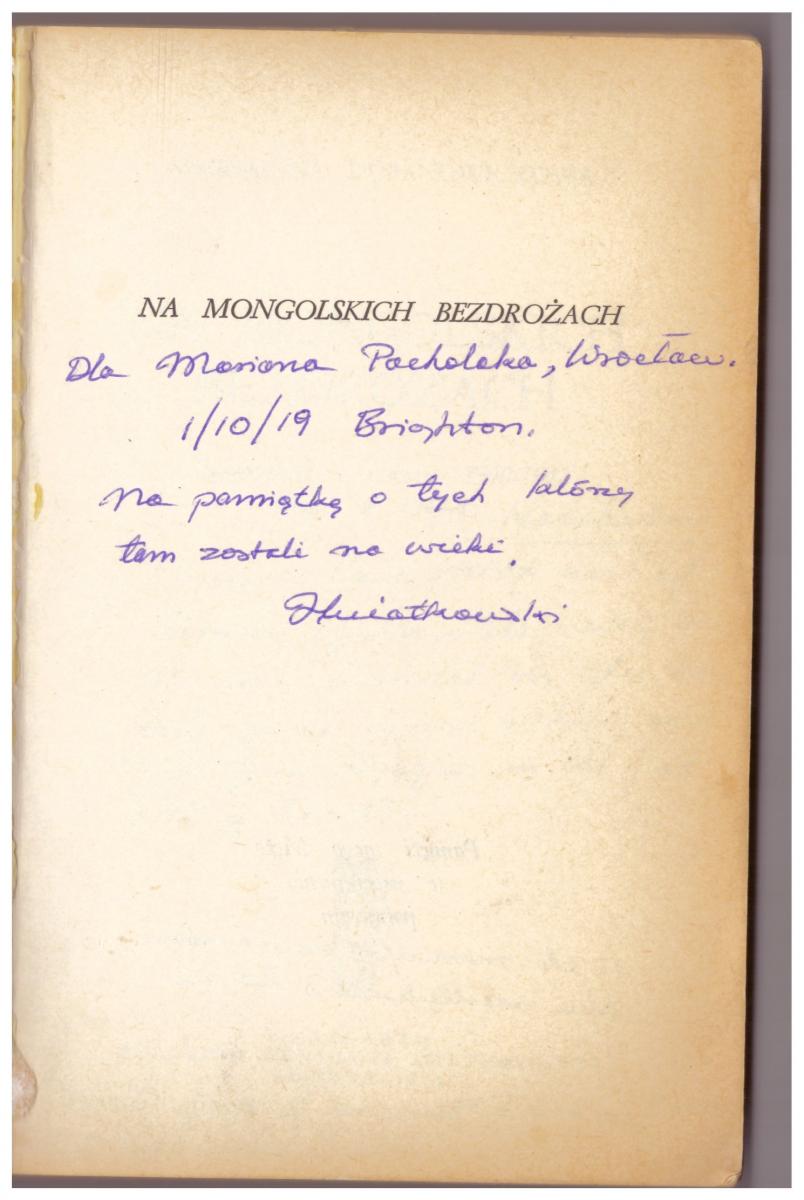 NA MONGOLSKICH BEZDROŻACH
Dla Mariana Pacholaka, Wrocław.
1/10/19 Brighton.
Na pamiątkę o tych którzy
tam zostali na wieki.
Kwiatkowski